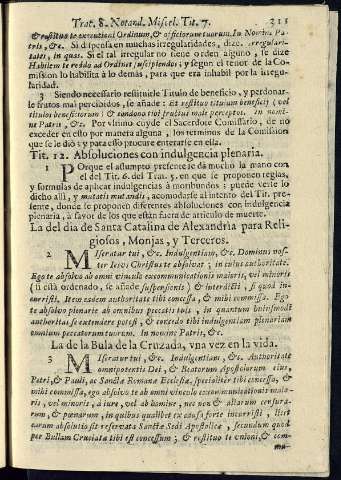 Trat. 8. Notand. Miscel. Tit. 7. 311
& restituo te executioni Ordinum, & officiorum tuorum. In Nomine Pa-
tris, &c. Si dispensa en muchas irregularidades, dize. irregulari-
tatis, in quas. Si el tal irregular no tiene orden alguno, se dize
Habilem te reddo ad Ordines suscipiendos; y segun el tenor de la Co-
mission lo habilita à lo demàs, para que era inhabil por la irregu-
laridad.
3 Siendo necessario restituirle Titulo de beneficio, y perdonar-
le frutos mal percibidos, se añade: Et restituo tituium beneficij (vel
titulos beneficiorum) & condono tibi fructus male perceptos. In nomi-
ne Patris, &c. Por vltimo cuyde el Sacerdote Comissario, de no
exceder en esto por manera alguna, los terminos de la Comission
que se le diò: y para esso procure enterarse en ella.
Tit. 12. Absoluciones con indulgencia plenaria.
1 Porque el assumpto presente se dà mucho la mano con
el del Tit. 6. del Trat. 5. en que se proponen reglas,
y formulas de aplicar indulgencias à moribundos: puede verse lo
dicho alli, y mutatis mutandis, acomodarse al intento del Tit. pre-
sente, donde se proponen diferentes absoluciones con indulgencia
plenaria, à favor de los que estàn fuera de articulo de muerte.
La del dia de Santa Catalina de Alexandria para Reli-
giosos, Monjas, y Terceros.
2 Miseratur tui, &c. Indulgentiam, &c. Dominus nos-
ter Iesus Christus te absolvat; in cuius authoritate.
Ego te absolvo ab omni vinculo excommunicationis maioris, vel minoris
(si està ordenado, se añade suspensionis) & interdicti, si quod in-
curristi. Item eadem authoritate tibi concessa, & mihi commissa. Ego
te absolvo plenarie ab omnibus peccatis tuis, in quantum huiusmodi
authoritas se extendere potest, & concedo tibi indulgentiam plenariam
omnium peccatorum tuorum. In nomine Patris, &c.
La de la Bula de la Cruzada, vna vez en la vida.
3 Miseratur tui, &c. Indulgentiam, &c. Authoritate
omnipotentis Dei, & Beatorum Apostolorum eius,
Petri, & Pauli, ac Sanctæ Romanæ Ecclesiæ, specialiter tibi concessa, &
mihi commissa, ego absolvo te ab omni vinculo excommunicationis maio-
ris, vel minoris, à iure, vel ab homine, nec non & aliarum censura-
rum, & pœnarum, in quibus qualibet ex causa forte incurristi, licet
earum absolutio sit reservata Sanctæ Sedi Apostolicæ, secundum quod
per Bullam Cruciatæ tibi est concessum; & restituo te vnioni, & com-
mu-